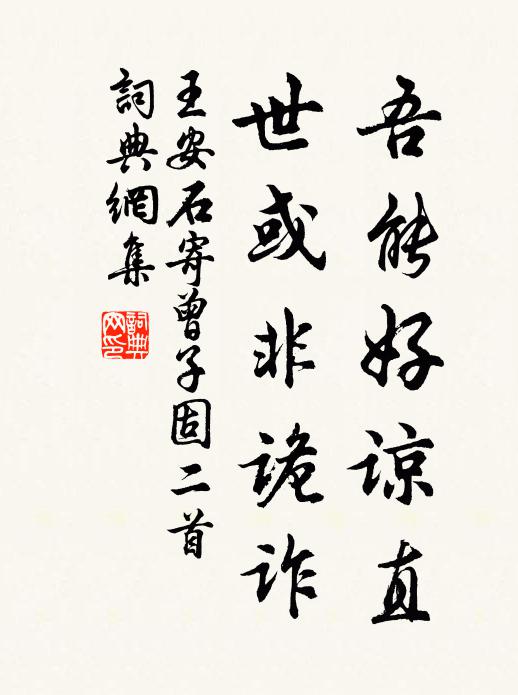 吾能好諒直
世或非詭詐
王安石寄曾子固二首
詞典網集
詞典网印